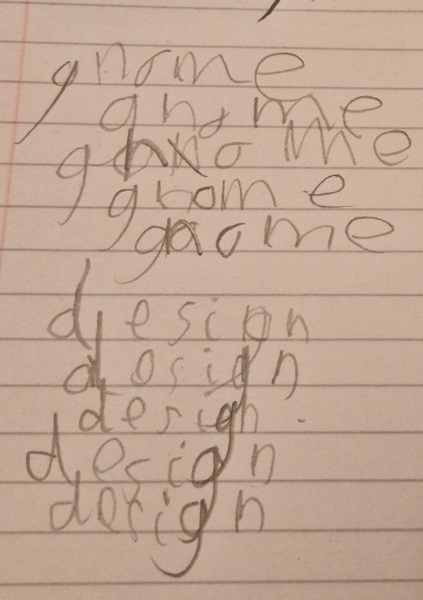 gnome
gnome
gnome
gnome
gnome
design
design
design
design
design